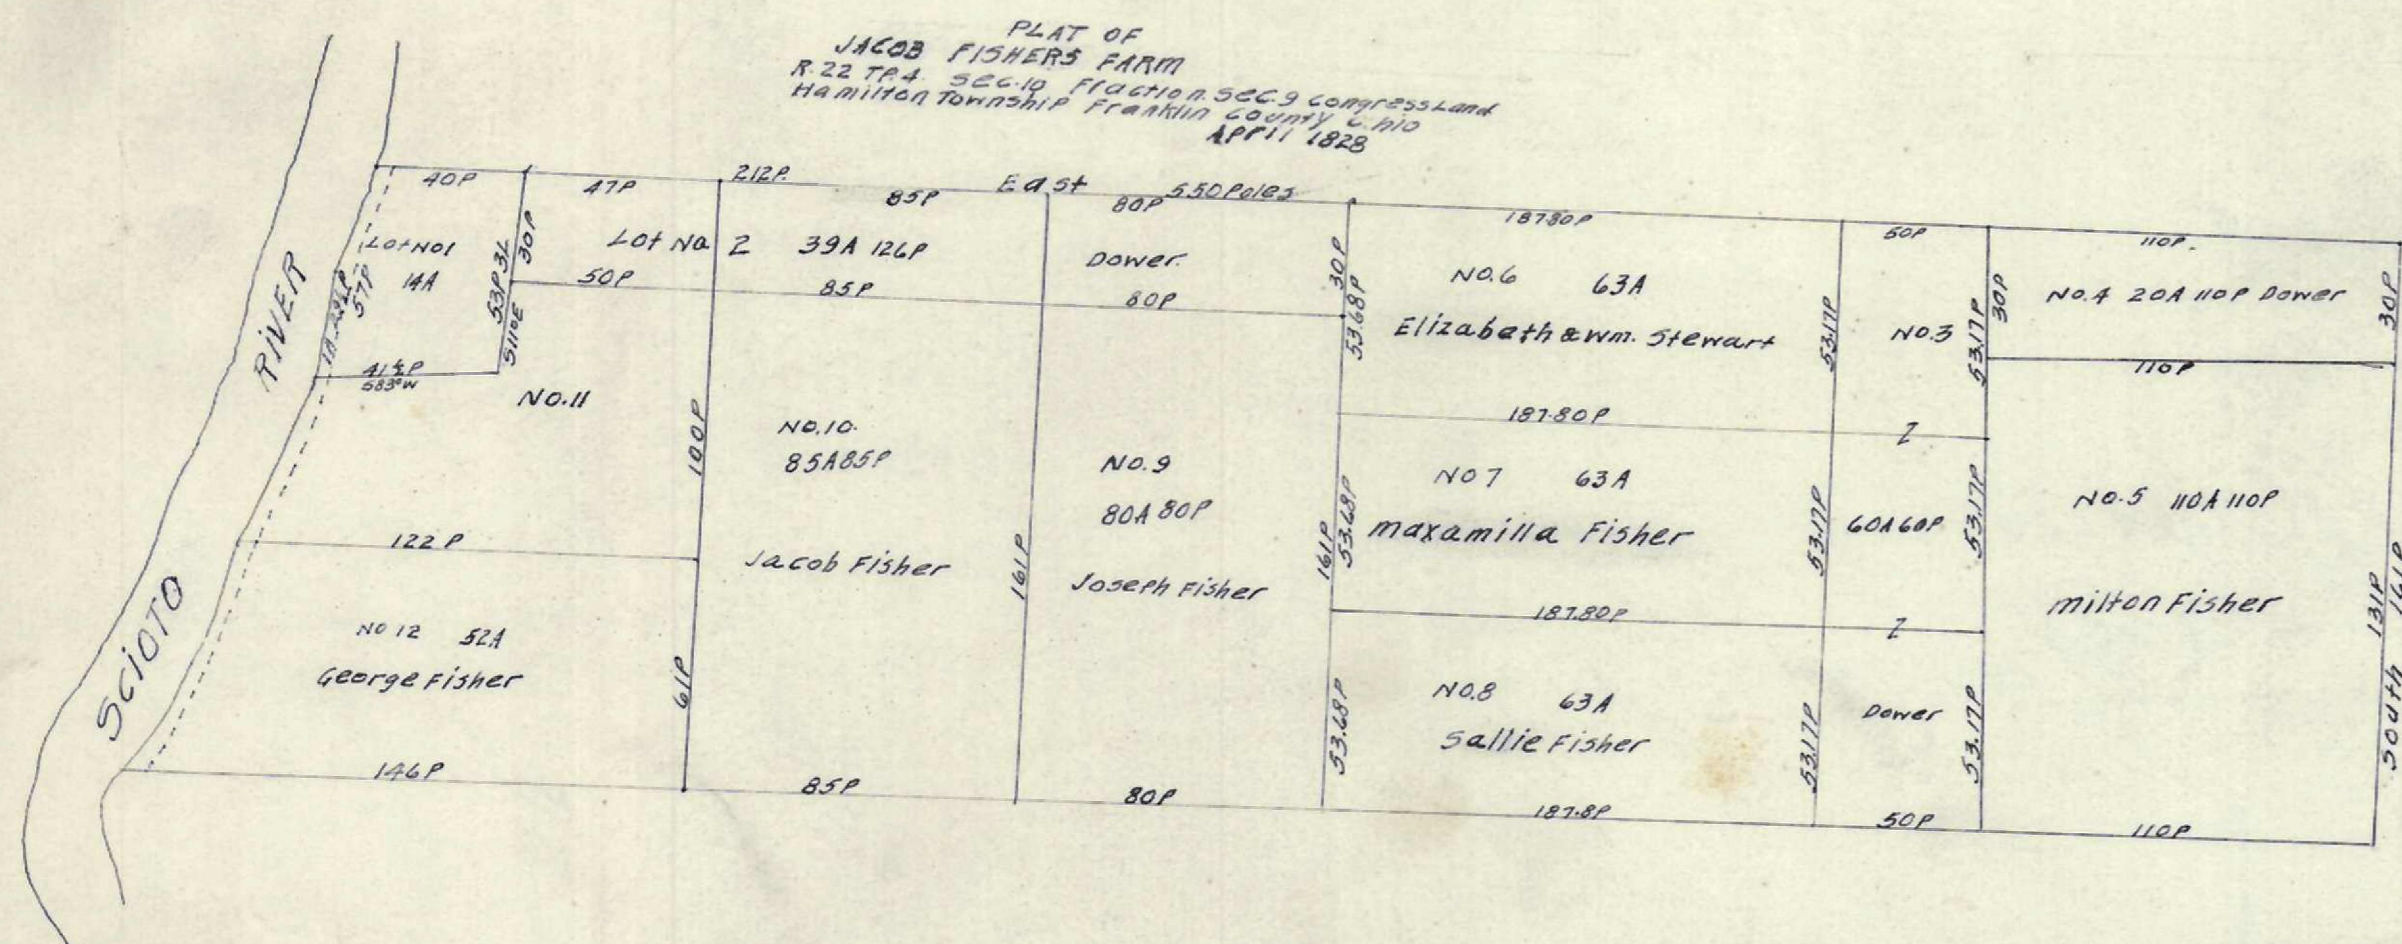 PLAT OF
JACOB FISHERS FARM
R.22 TP.4. SEC.10 Fraction SEC.9 Congress Land
Hamilton Township Franklin County Ohio
APril 1828
40P
47P
212P.
85P
East
80P
550 Poles
187.80P
50P
110P.
Lot No1
14A
57P
53P3L
S11°E
30P
Lot No 2 39A 126P
50P
85P
Dower.
80P
30P
53.68P
No.6 63A
Elizabeth & Wm. Stewart
53.17P
No.3
53.17P
30P
No.4 20A 110P Dower
30P
110P
RIVER
41½P
S83°W
No.11
100P
No.10.
85A85P
Jacob Fisher
161P
No.9
80A 80P
Joseph Fisher
161P
53.68P
187.80P
No 7 63A
maxamilla Fisher
53.17P
Z
60A60P
53.17P
No.5 110A 110P
milton Fisher
131P
South 161P
122P
SCIOTO
No 12 52A
George Fisher
61P
187.80P
Z
53.68P
No.8 63A
Sallie Fisher
53.17P
Dower
53.17P
146P
85P
80P
187.8P
50P
110P